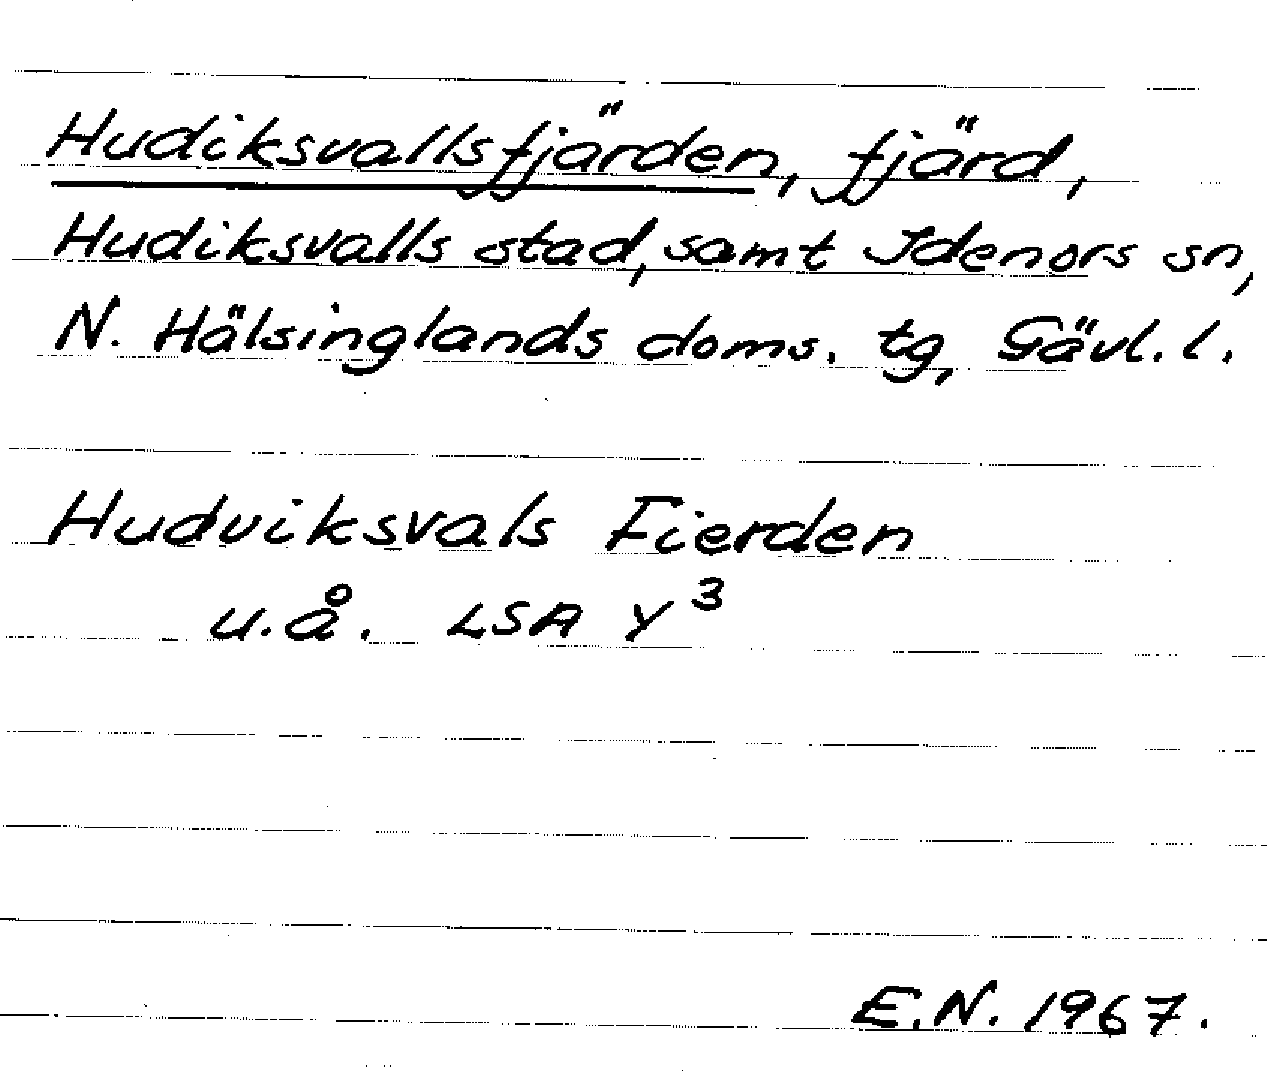 Hudiksvallsfjärden, fjärd,
Hudiksvalls stad, samt Idenors sn,
N. Hälsinglands doms. tg, Gävl. l.
Hudviksvals Fierden
u.å. LSA Y³
E.N. 1967.